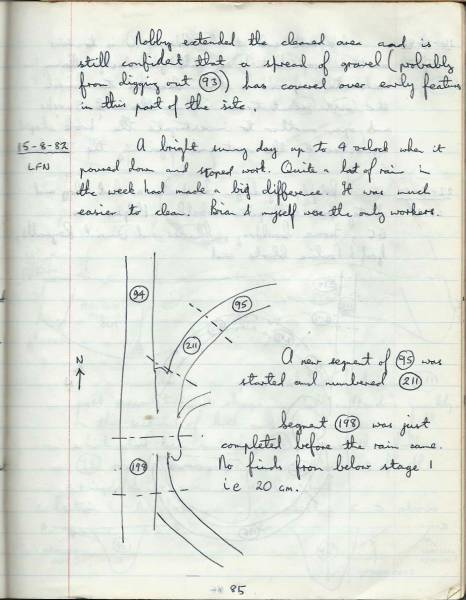 Nobby extended the cleaned area and is
still confident that a spread of gravel (probably
from digging out 93) has covered over early features
in this part of the site.
15-8-82
LFN
A bright sunny day up to 4 oclock when it
poured down and stoped work. Quite a lot of rain in
the week had made a big difference. It was much
easier to clean. Brian & myself were the only workers.
94
95
211
N
A new segment of 95 was
started and numbered 211
Segment 198 was just
completed before the rain came.
No finds from below stage 1
i.e 20 cm.
198
85